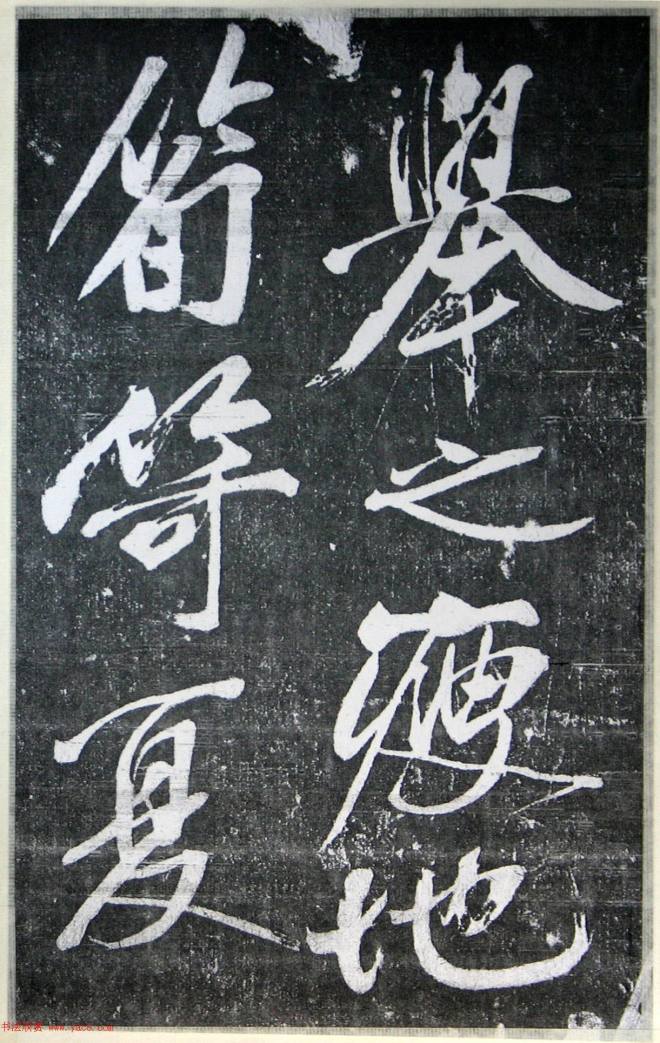 舉之瘦地
筍等夏
书法欣赏 www.yac8.com